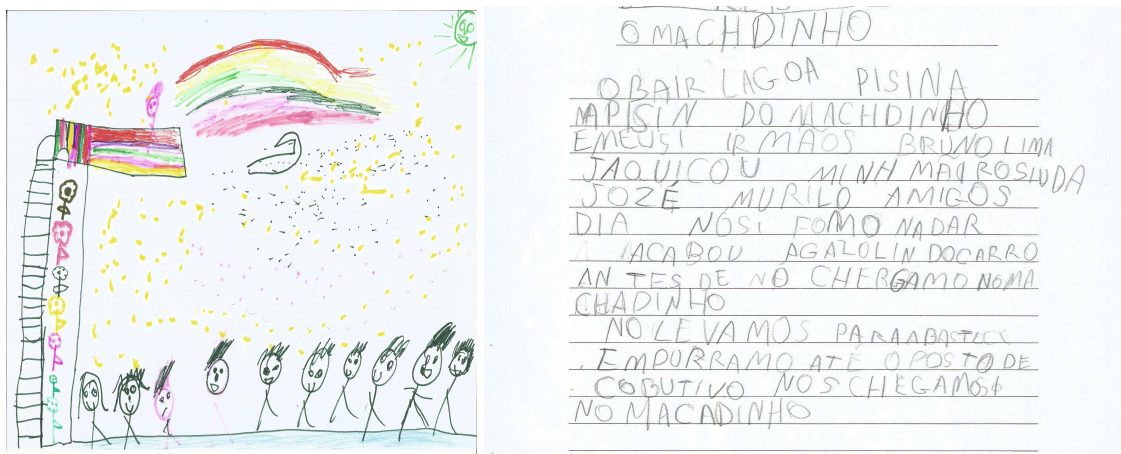 O MACHDINHO
OBAIR LAGOA PISINA
APISIN DO MACHDINHO
EMEUSI IRMAOS BRUNO LIMA
JAQUICOU MINH MAQROSIUDA
JOZÉ MURILO AMIGOS
DIA NÓSI FOMO NADAR
ACABOU AGAZOLIN DOCARRO
AN TES DE NO CHERGAMO NOMA
CHADINHO
NO LEVAMOS PARANBASTECE
EMPURRAMO ATÉ OPOSTO DE
COBUTIVO NOS CHEGAMOS
NO MACADINHO